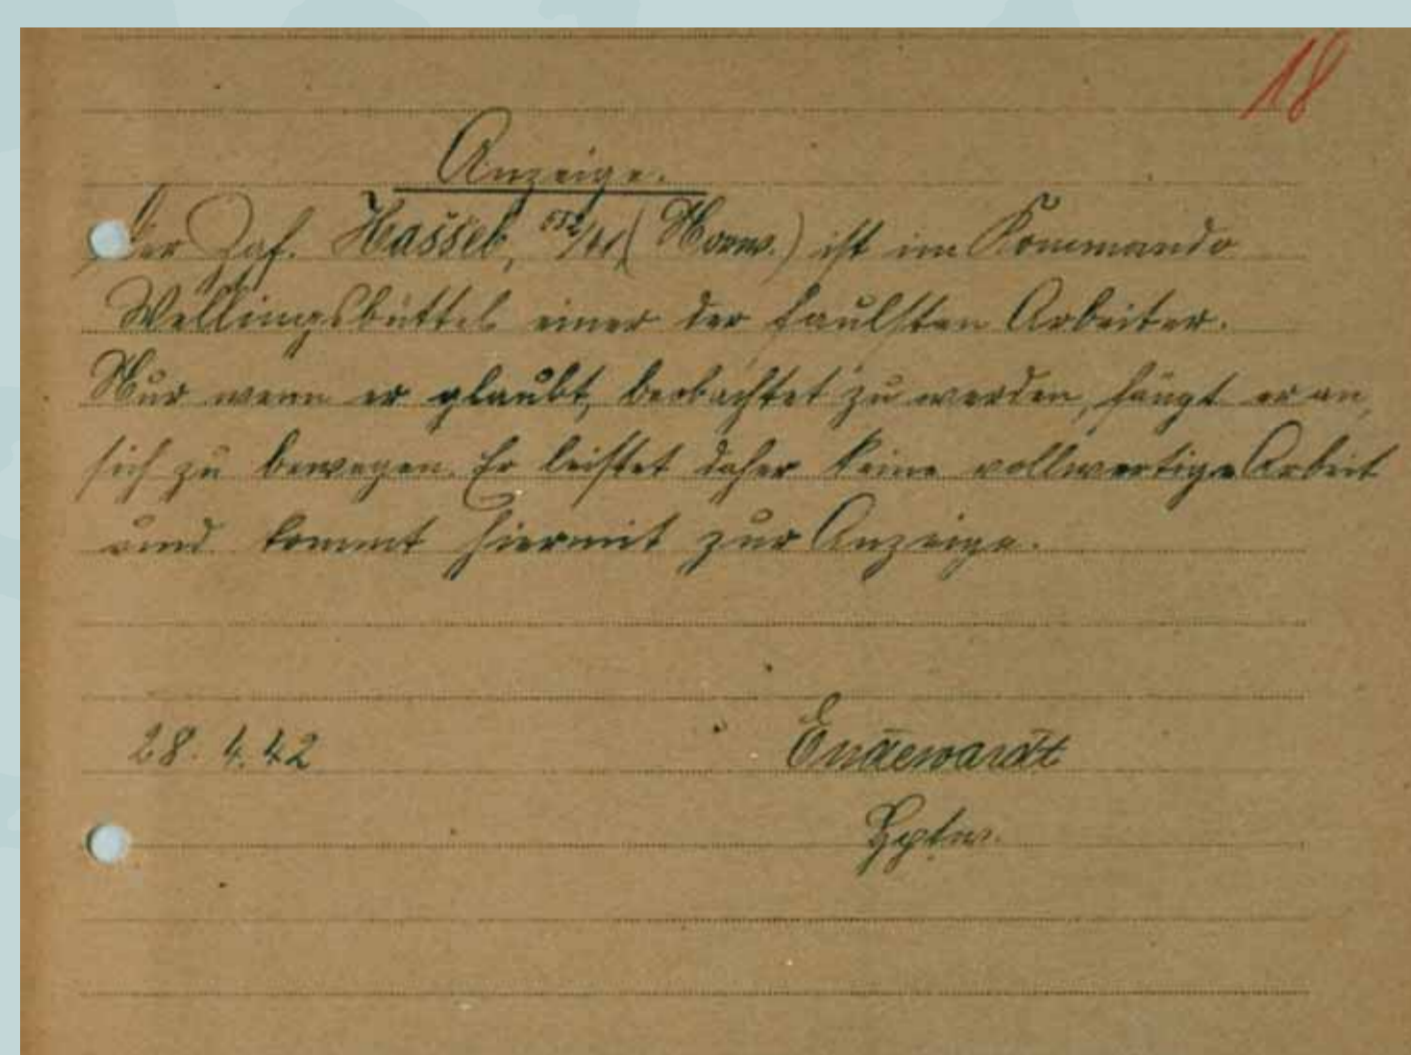 18
Anzeige.
Der Zgf. Hassel, 552/41 (Norw.) ist im Kommando
Wellingsbüttel einer der faulsten Arbeiter.
Nur wenn er glaubt, beobachtet zu werden, fängt er an,
sich zu bewegen. Er leistet daher keine vollwertige Arbeit
und kommt hiermit zur Anzeige.
28.4.42
Endewardt
Hptw.